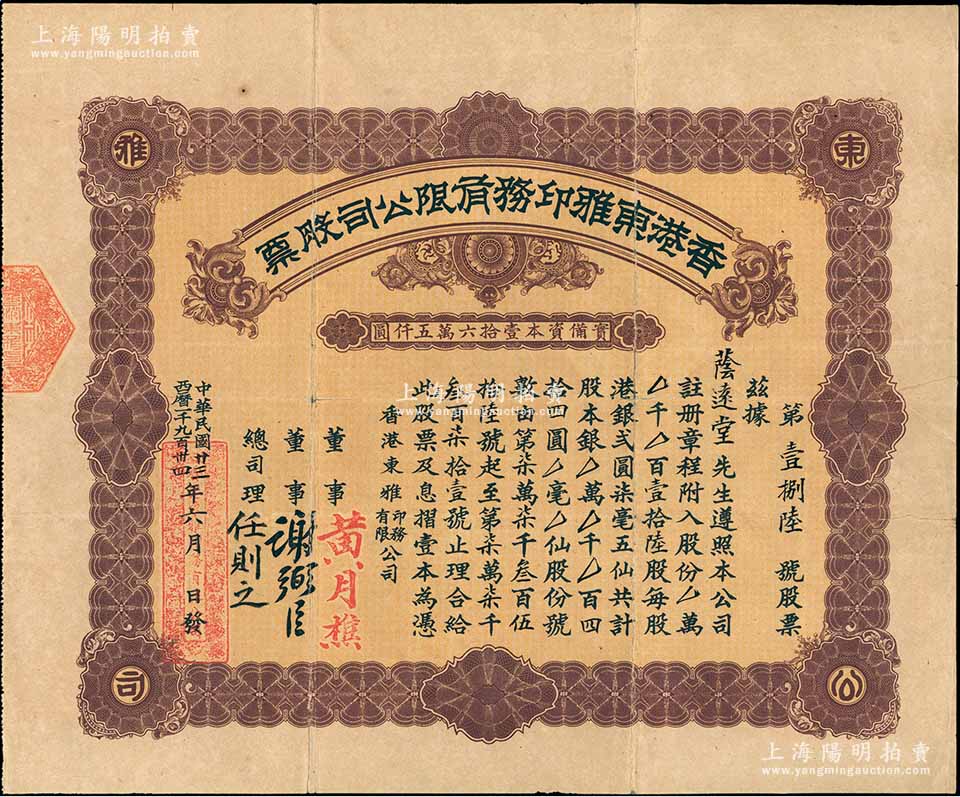 上海陽明拍賣
www.yangmingauction.com
東
雅
香港東雅印務有限公司股票
實備資本壹拾六萬五仟圓
第壹捌陸號股票
茲據
蔭遠堂先生遵照本公司
註册章程附入股份厶萬
厶千厶百壹拾陸股每股
港銀弍圓柒毫五仙共計
股本銀厶萬厶千厶百四
拾四圓厶毫厶仙股份號
數由第柒萬柒千叁百伍
拾陸號起至第柒萬柒千
叁百柒拾壹號止理合給
此股票及息摺壹本為憑
香港東雅印務有限公司
董事 黃月樵
董事 謝弼臣
總司理 任則之
中華民國廿三
西曆一千九百卅四
年六月 日發
公
司
上海陽明拍賣
www.yangmingauction.com
上海陽明拍賣
www.yangmingauction.com